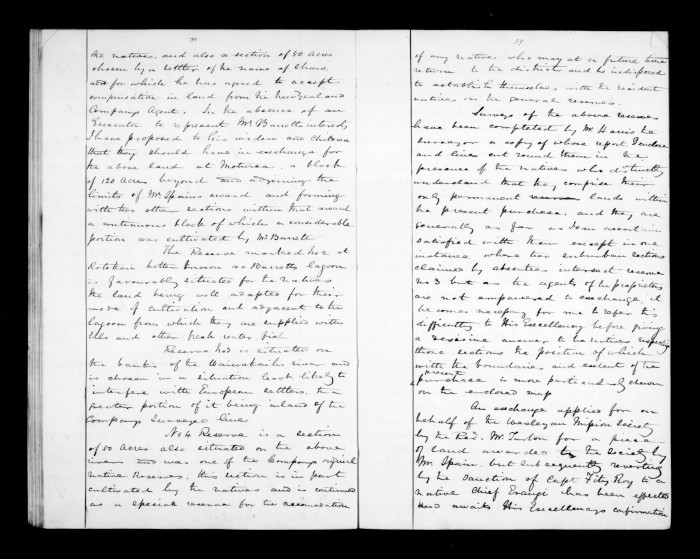 the natives, and also a section of 50 acres
chosen by a settler of the name of Shaw,
and for which he has agreed to accept
compensation in land from the New Zealand
Companys Agent. In the absence of an
Executor to represent Mr Barretts interests
I have proposed to his widow and Children
that they should have in exchange for
the above land at Moturoa, a block
of 120 Acres beyond and adjoining the
limits of Mr Spains award and forming
with two other sections within that award
a continuous block of which a considerable
portion was cultivated by Mr Barrett.
The Reserve marked No 2 at
Rotokari better known as Barretts lagoon
is favourably situated for the Natives
the land being well adapted for their
mode of cultivation and adjacent to the
lagoon from which they are supplied with
Eels and other fresh water fish.
Reserve No 3 is situated on
the banks of the Waiwakaiho river and
is chosen in a situation least likely to
interfere with European settlers, the
greater portion of it being inland of the
Companys Surveyed line
No 4 Reserve is a section
of 50 Acres also situated on the above
river and was one of the Companys original
Native Reserves, this section is in part
cultivated by the natives and is continued
as a special reserve for the accomodation
39
of any natives who may at a future time
return to the district and be indisposed
to establish themselves with the resident
natives on the general reserves.
Surveys of the above reserves
have been completed by Mr Harris the
surveyor a copy of whose report I enclose
and lines cut round them in the
presence of the natives who distinctly
understand that they comprise their
only permanent lands within
the present purchase, and they are
generally as far as I can ascertain
satisfied with them except in one
instance where two suburban sections
claimed by absentees intersect reserve
No 3 but as the agents of the proprietors
are not empowered to exchange, it
becomes necessary for me to refer this
difficulty to His Excellency before giving
a decisive answer to the natives respecting
those sections the position of which
with the boundaries and extent of the
present
purchase is more particularly shewn
on the enclosed map
An exchange applied for on
behalf of the Wesleyan Mission Society
by the Revd. Mr Turton for a piece
of land awarded to the Society by
Mr Spain but subsequently reverting
by the sanction of Capt Fitz Roy to a
native Chief Erangi has been effected
and awaits His Excellencys confirmation